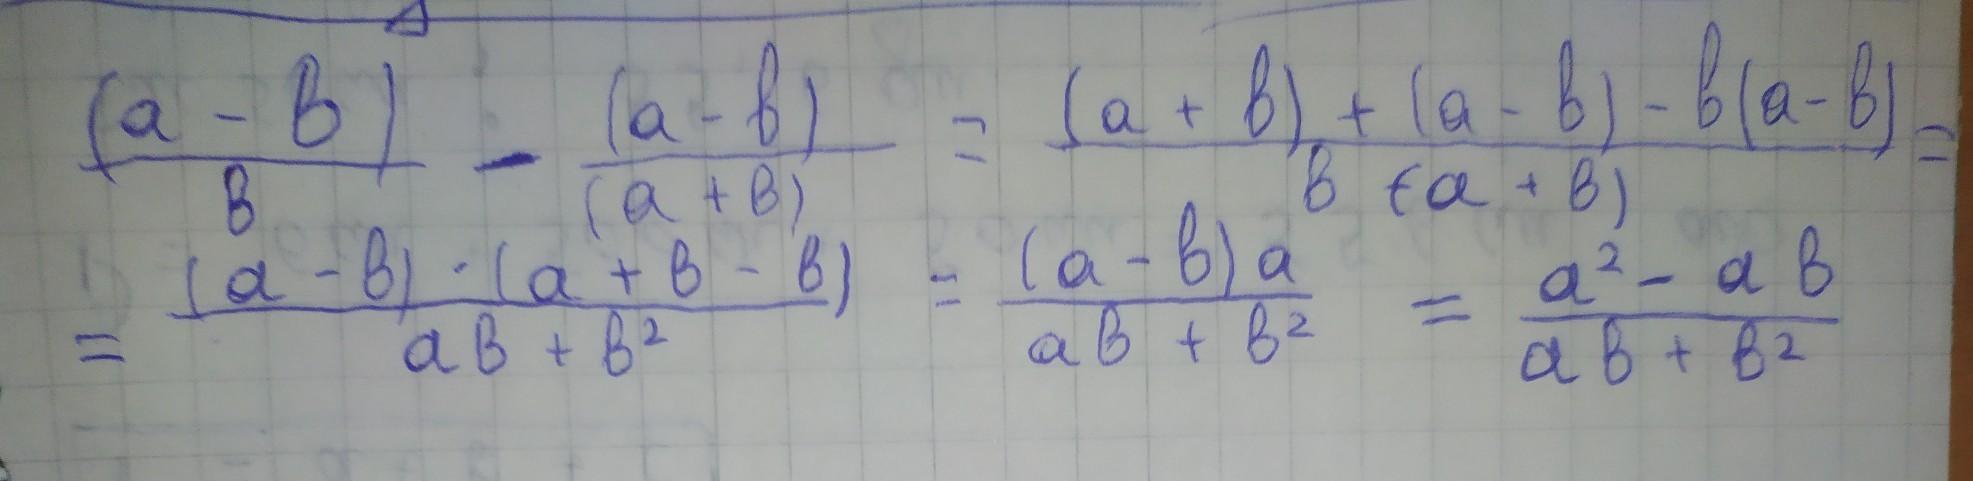 (a - b)/b - (a - b)/(a + b) = ((a + b) + (a - b) - b(a - b))/(b (a + b)) =
= ((a - b) · (a + b - b))/(ab + b²) = ((a - b) a)/(ab + b²) = (a² - ab)/(ab + b²)